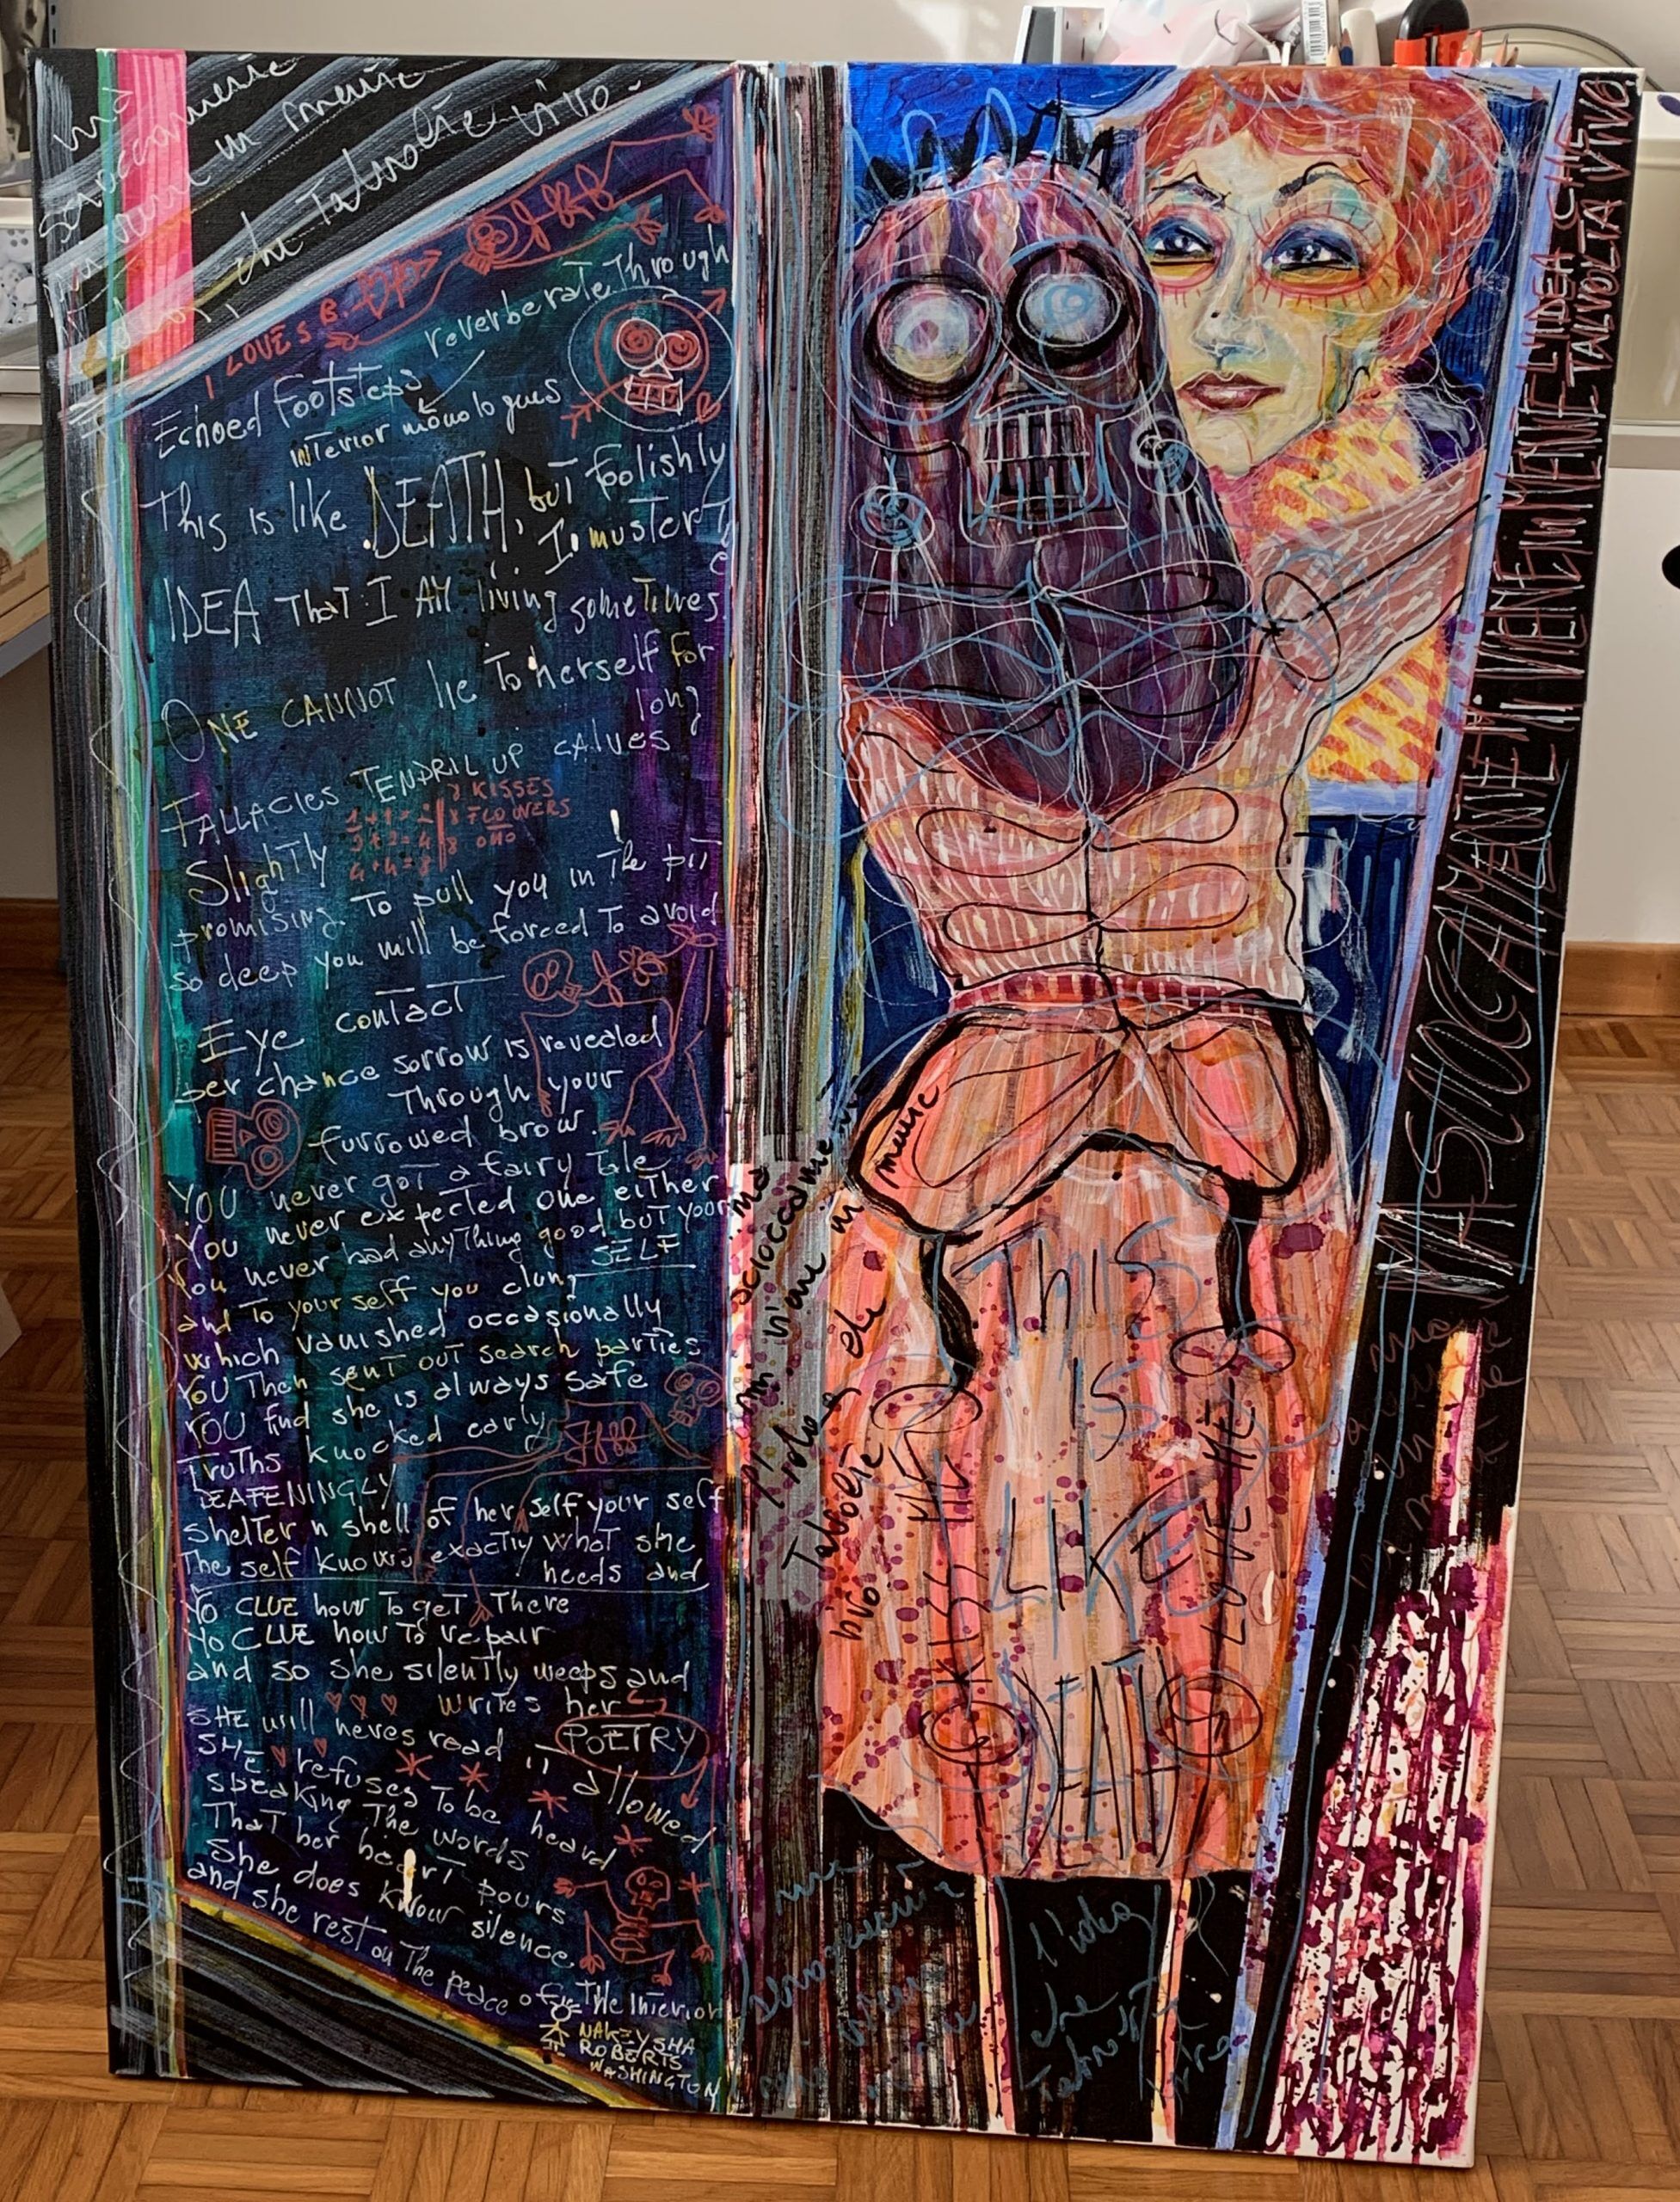 ma
scioccamente
mi viene in mente
che talvolta vivo.
I LOVE
Echoed Footsteps reverberate Through
interior monologues
This is like DEATH, but foolishly
I muster
IDEA That I AM living sometimes.
ONE CANNOT lie To herself For
long
FALLACIES TENDRIL UP CALVES
8 KISSES
8 FLOWERS
Slightly
promising To pull you in The pit
so deep you will be forced To avoid
Eye contact
per chance sorrow is revealed
Through your
furrowed brow.
YOU never got a fairy Tale
You never expected one either
You never had anything good but your
SELF
and To your self you clung
which vanished occasionally
YOU Then sent out search parties
YOU find she is always safe
Truths knocked early
DEAFENINGLY
Shelter n shell of her self your self
The self knows exactly what she
needs and
NO CLUE how To get There
NO CLUE how To repair
and so she silently weeps and
writes her
POETRY
SHE will never read
SHE refuses To be heard
allowed
speaking The words
That her heart pours
She does know silence
and she rest on The peace of The Interior
NAKEYSHA
ROBERTS
WASHINGTON
ma
scioccamente
mi viene in mente
che
talvolta
vivo
THIS
IS
LIKE
DEATH
KISS ME
LOVE ME
MA SCIOCCAMENTE MI VIENE IN MENTE L'IDEA CHE
TALVOLTA VIVO
ma
l'idea
che